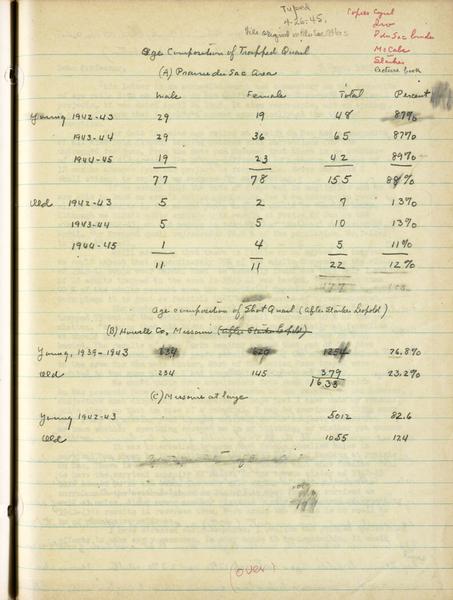 Typed
4-26-45,
File original
Copies Cyril
Irv
PduSac binder
McCabe
Starker
Lecture book
Age Composition of Trapped Quail
(A) Prairie du Sac Area
Male Female Total Percent
Young 1942-43 29 19 48 87%
1943-44 29 36 65 87%
1944-45 19 23 42 89%
77 78 155 88%
Old 1942-43 5 2 7 13%
1943-44 5 5 10 13%
1944-45 1 4 5 11%
11 11 22 12%
177
Age composition of Shot Quail (After Starker Leopold)
(B) Howell Co, Missouri (After Starker Leopold)
Young, 1939-1943 634 620 1254 76.8%
Old 234 145 379 23.2%
1633
(C) Missouri at large
Young 1942-43 5012 82.6
Old 1055 124
(over)